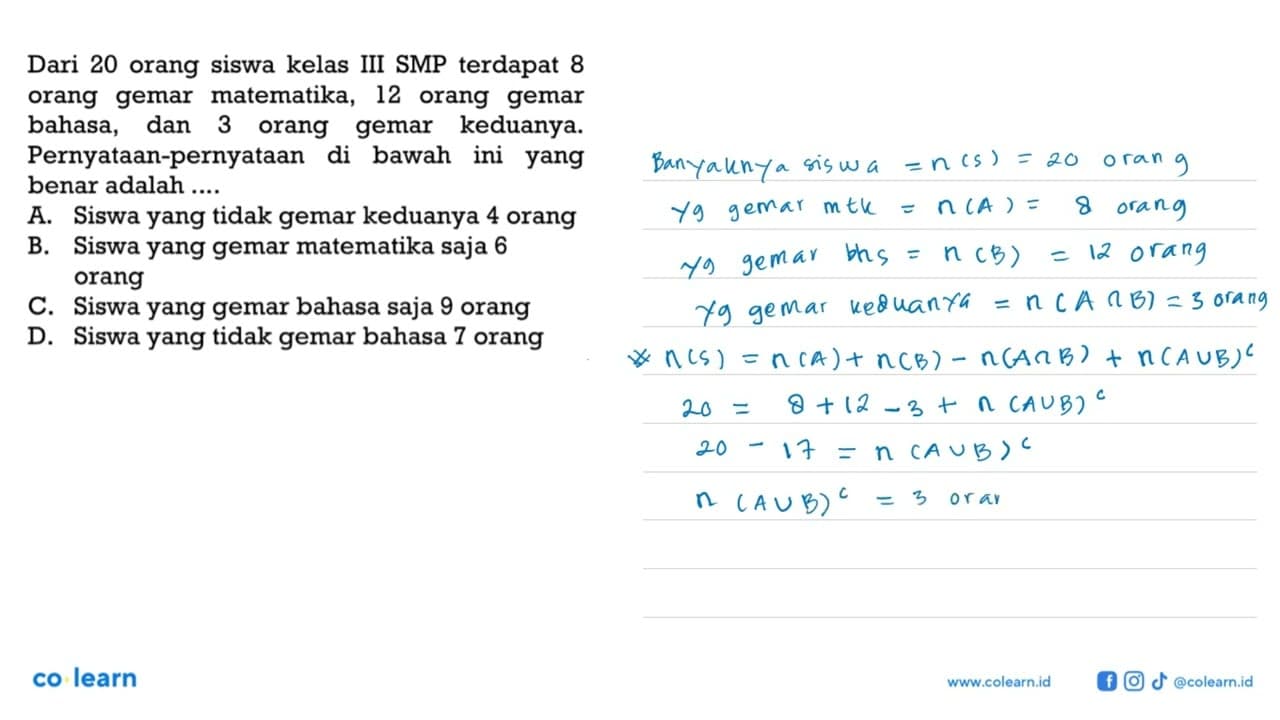 Dari 20 orang siswa kelas III SMP terdapat 8
orang gemar matematika, 12 orang gemar
bahasa, dan 3 orang gemar keduanya.
Pernyataan-pernyataan di bawah ini yang
benar adalah ....
A. Siswa yang tidak gemar keduanya 4 orang
B. Siswa yang gemar matematika saja 6
orang
C. Siswa yang gemar bahasa saja 9 orang
D. Siswa yang tidak gemar bahasa 7 orang
Banyaknya siswa = n(S) = 20 orang
yg gemar mtk = n(A) = 8 orang
yg gemar bhs = n(B) = 12 orang
yg gemar keduanya = n(A ∩ B) = 3 orang
* n(S) = n(A) + n(B) - n(A∩B) + n(A∪B)ᶜ
20 = 8 + 12 - 3 + n(A∪B)ᶜ
20 - 17 = n(A∪B)ᶜ
n(A∪B)ᶜ = 3 oran
co learn
www.colearn.id
@colearn.id